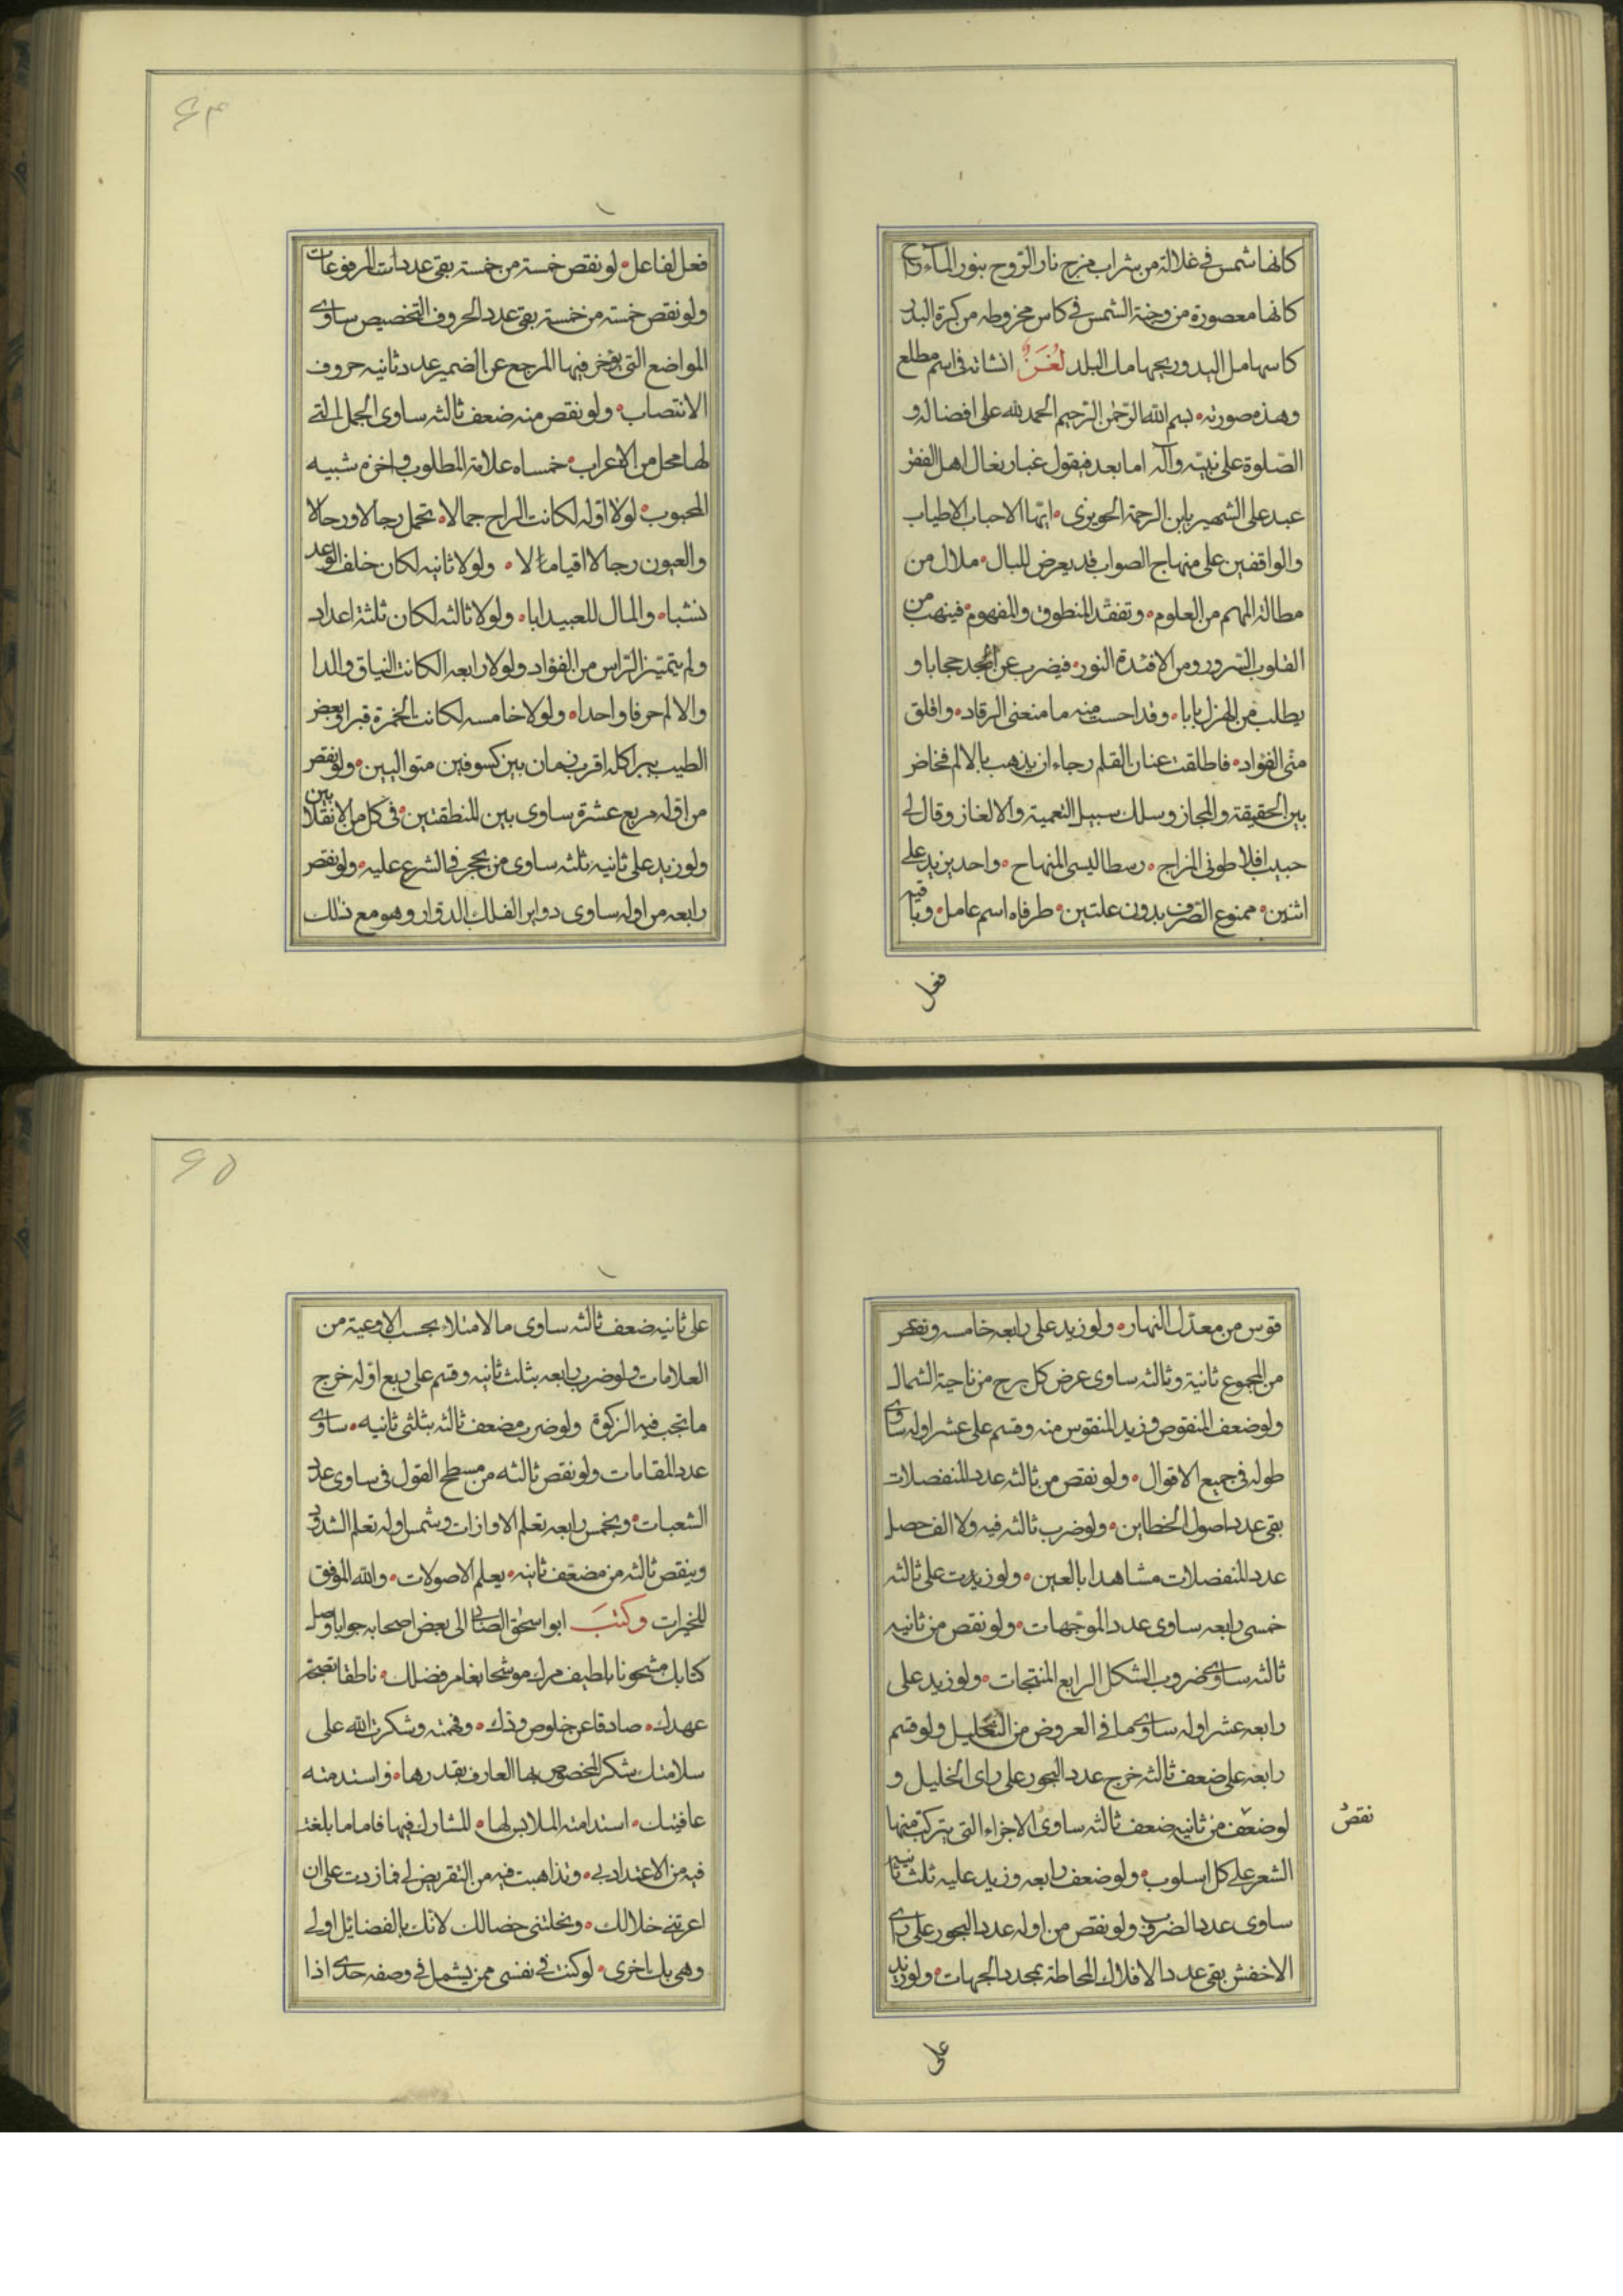 كانها شمس في غلالة من شراب مزج نار الروح بنور الماء راح
كانها معصورة من وجنة الشمس في كاس مخروطه من كرة البدر
كاسها مل اليد وريحها مل البلد لغز انشاته في اسم مطلع
وهذه صورته بسم الله الرحمن الرحيم الحمد لله على افضاله و
الصلوة على نبيه وآله اما بعد فيقول غبار نعال اهل الفقر
عبد على الشهير بابن الرحمة الحويزى ايها الاحباب الاطياب
والواقفين على منهاج الصواب قد يعرض للبال ملال من
مطالة المهم من العلوم وتفقد المنطوق والمفهوم فينهب من
القلوب السرور ومن الافئدة النور فيضرب عن الجد حجابا و
يطلب من الهزل بابا وقد احست منه ما منعنى الرقاد واقلق
منى الفؤاد فاطلقت عنان القلم رجاء ان يذهب بالالم فخاض
بين الحقيقة والمجاز وسلك سبيل التعمية والالغاز وقال لى
حبيب افلاطونى المزاج رسطاليسى المنهاج واحد يزيد على
اثنين ممنوع الصرف بدون علتين طرفاه اسم عامل وباقيه
فعل
۶۴
فعل لفاعل لو نقص خمسة من خمسة بقى عدد ات المرفوعات
ولو نقص خمسة من خمسة بقى عدد الحروف التخصيص ساوى
المواضع التى يؤخر فيها المرجع عن الضمير عدد ثانيه حروف
الانتصاب ولو نقص منه ضعف ثالثه ساوى الجمل التى
لها محل من الاعراب خمساه علامة المطلوب واخره شبيه
المحبوب لولا اوله لكانت الراح جمالا تحمل رجالا ورحالا
والعيون رجالا اقياما لا ولولا ثانيه لكان خلف الوعد
نشبا والمال للعبيد ابا ولولا ثالثه لكان ثلثة اعداد
ولم يتميز الراس من الفؤاد ولولا رابعه لكانت النياق والدا
والالم حرفا واحدا ولولا خامسه لكانت الخمرة قبرا وبعض
الطيب يبرا كله اقرب زمان بين كسوفين متواليين ولو نقص
من اوله مربع عشرة ساوى بين المنطقتين في كل من الانقلابين
ولو زيد على ثانيه ثلثه ساوى من يحجر في الشرع عليه ولو نقص
رابعه من اوله ساوى دواير الفلك الدوار وهو مع ذلك
قوس من معدل النهار ولو زيد على رابعه خامسه ونقص
من المجموع ثانية وثالثه ساوى عرض كل برج من ناحية الشمال
ولو ضعف المنقوص وزيد المنقوس منه وقسم على عشر اوله ساوى
طوله في جميع الاقوال ولو نقص من ثالثه عدد المنفصلات
بقى عدد اصول الخطاين ولو ضرب ثالثه فيه ولا الف حصل
عدد المنفصلات مشاهدا بالعين ولو زيدت على ثالثه
خمسى رابعه ساوى عدد الموجهات ولو نقص من ثانيه
ثالثه ساوى ضروب الشكل الرابع المنتجات ولو زيد على
رابعه عشر اوله ساوى ما في العروض من التحليل ولو قسم
رابعه على ضعف ثالثه خرج عدد البحور على راى الخليل و
لو ضعف من ثانيه ضعف ثالثه ساوى الاجزاء التى يتركب منها
نقص
الشعر على كل اسلوب ولو ضعف رابعه وزيد عليه ثلث ثانيه
ساوى عدد الضروب ولو نقص من اوله عدد البحور على راى
الاخفش بقى عدد الافلاك المحاطة بمحدد الجهات ولو زيد
على
۶۵
على ثانيه ضعف ثالثه ساوى مالامتلاء بحسب الاوعية من
العلامات ولو ضرب رابعه بثلث ثانيه وقسم على ربع اوله خرج
ما تجب فيه الزكوة ولو ضرب مضعف ثالثه بثلثى ثانيه ساوى
عدد المقامات ولو نقص ثالثه من مسطح القول في ساوى عدد
الشعبات وبخمس رابعه تعلم الاوازات وبثمن اوله تعلم الشدود
وبنقص ثالثه من مضعف ثانيه يعلم الاصولات والله الموفق
للخيرات وكتب ابو اسحق الصابى الى بعض اصحابه جوابا وصل
كتابك مشحونا بلطيف برك موشحا بغامر فضلك ناطقا بصحة
عهدك صادقا عن خلوص ودك وفهمته وشكرت الله على
سلامتك شكر المخصوص بها العارف بقدرها واستدمته
عافيتك استدامته الملابس لها المشارك فيها فاما ما بلغت
فيه من الاعتداد بى وتذاهبت فيه من التقريض لى فما زدت على ان
اعرتنى خلالك ونحلتنى خصالك لانك بالفضايل اولى
وهى بك احرى لو كنت في نفسى ممن يشمل في وصفه حدى اذا